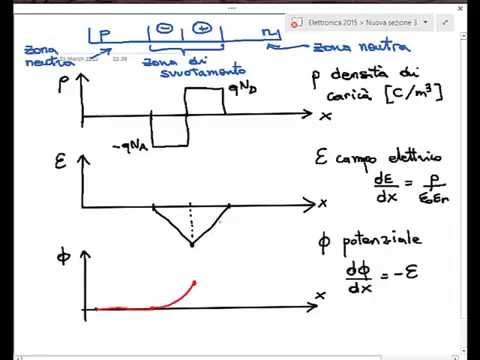 Elettronica 2015 > Nuova sezione 3
p - + n
zona neutra
zona di svuotamento
zona neutra
ρ
qND
-qNA
x
ρ densità di carica [C/m³]
ε
x
ε campo elettrico
dE/dx = ρ/ε0εr
ϕ
x
ϕ potenziale
dϕ/dx = -ε